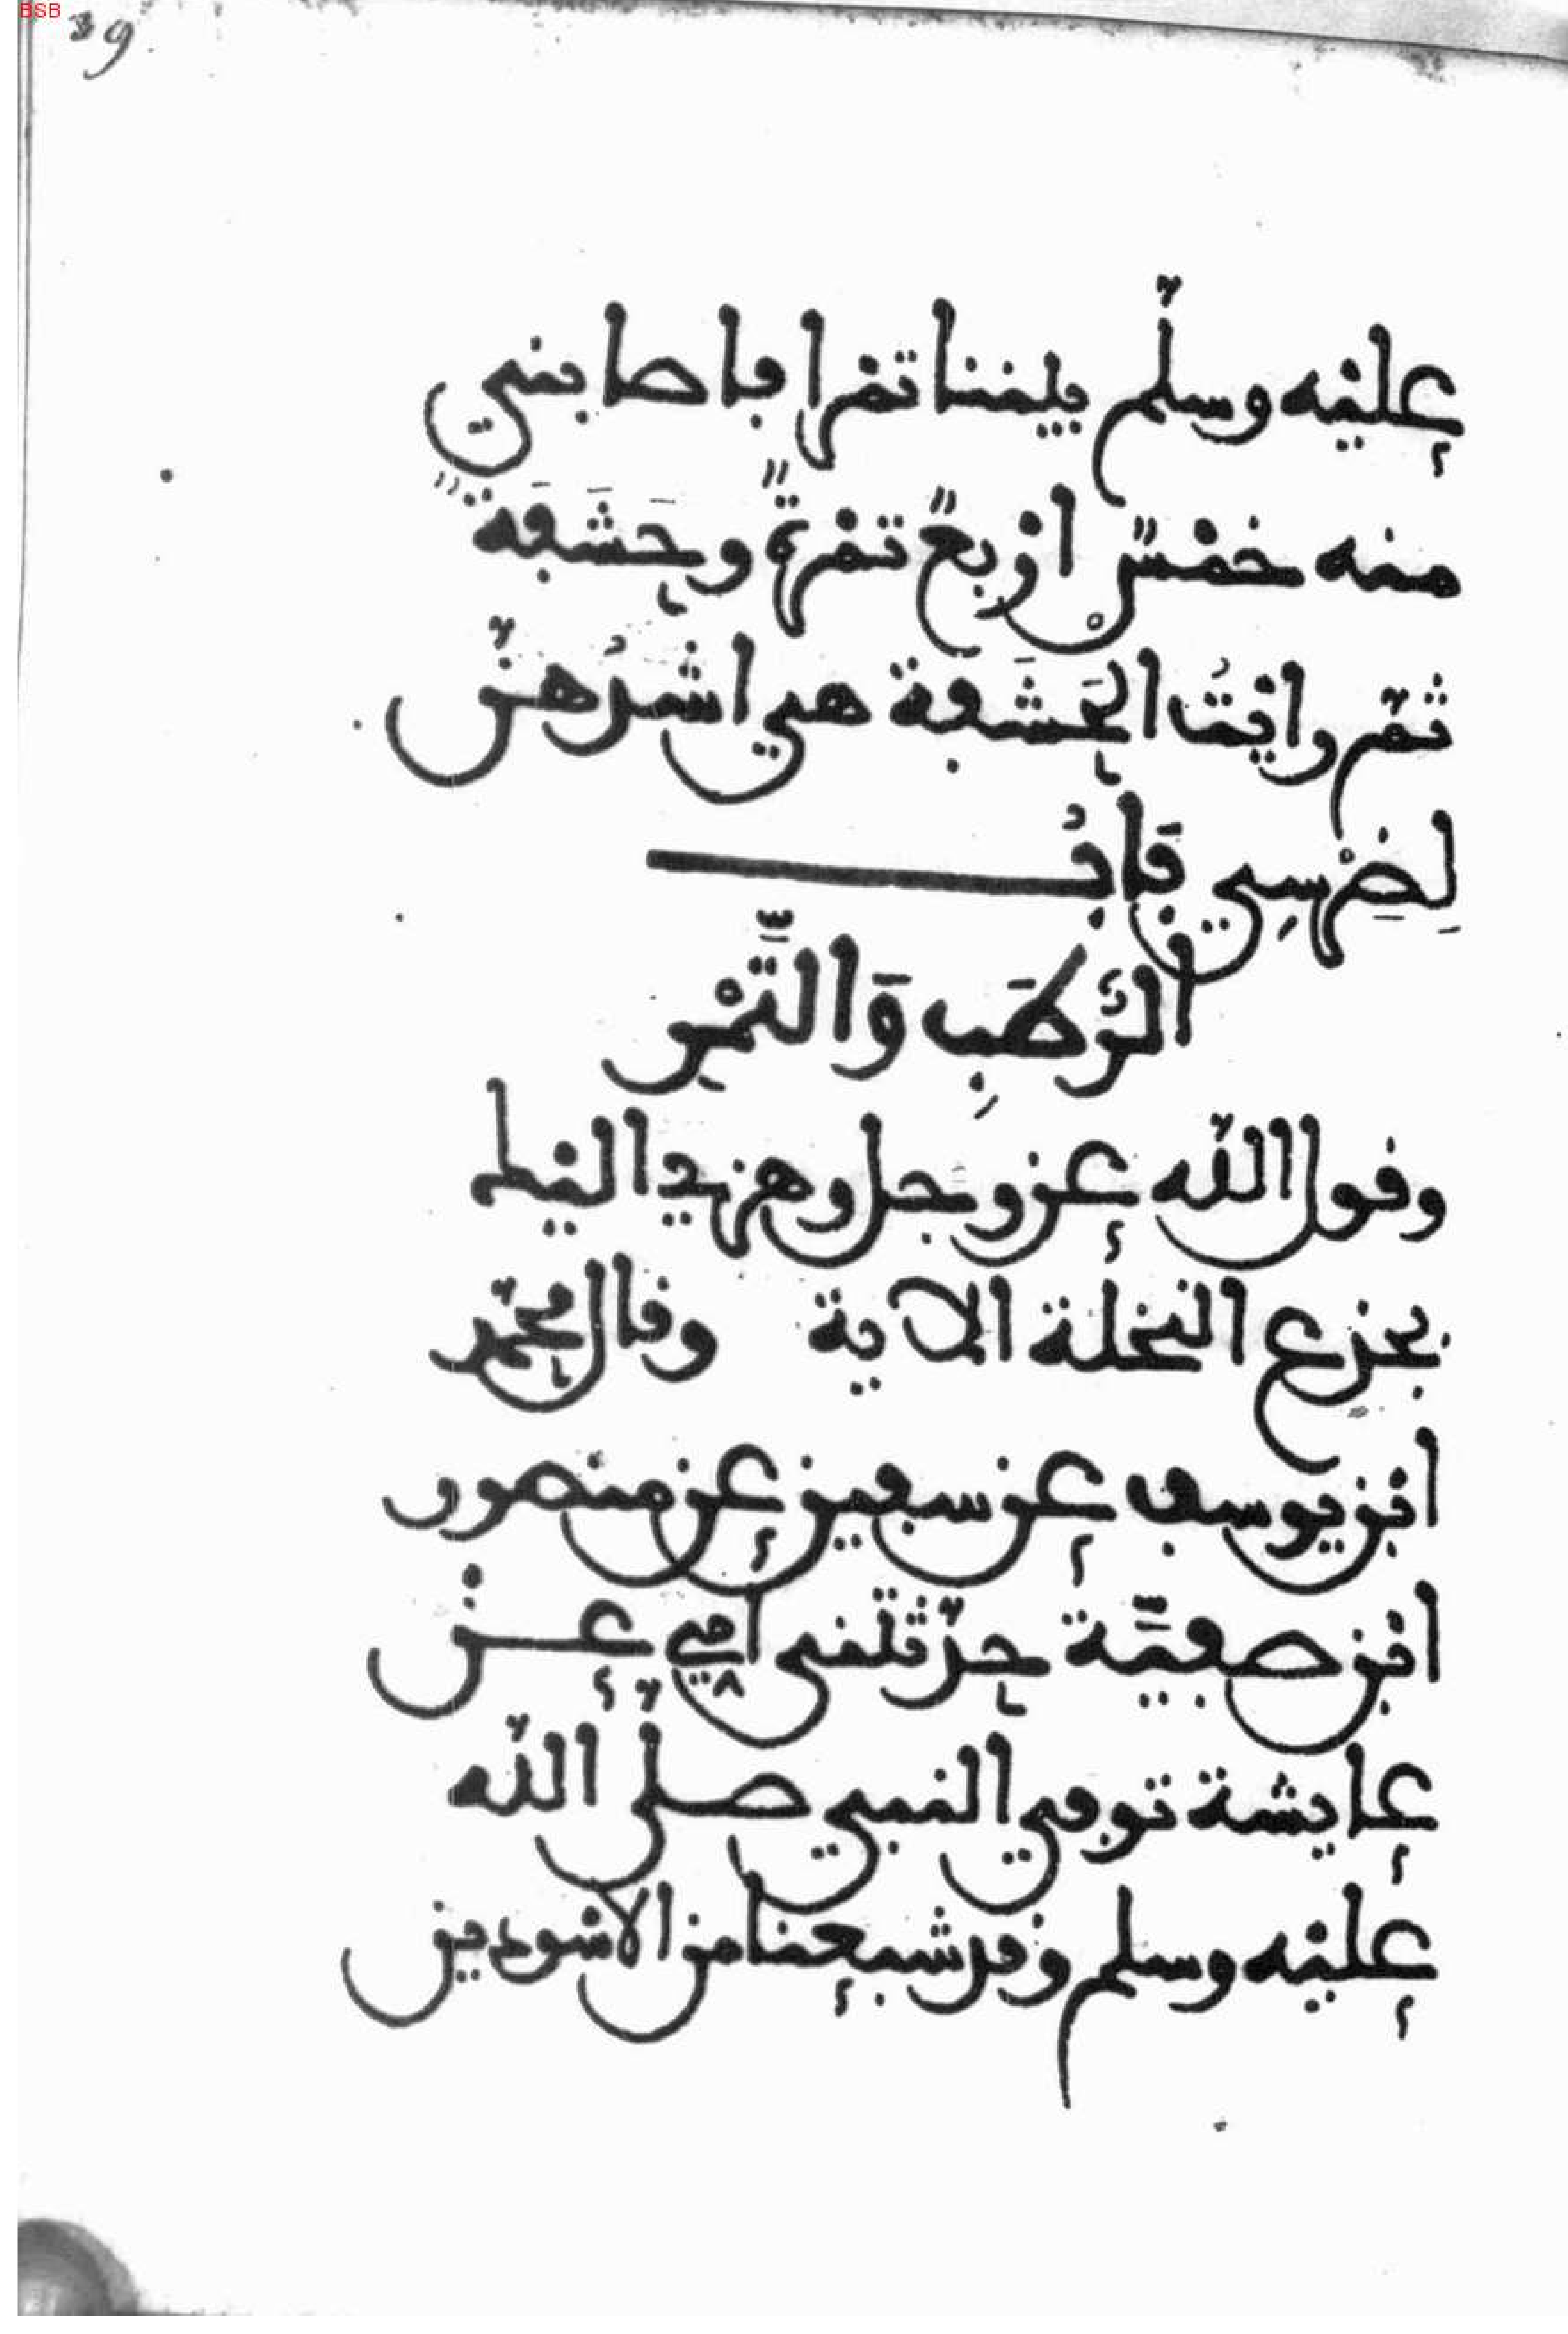 BSB
39
عليه وسلم بيننا تمرا فاصابني
منه خمسٌ اربعٌ تمرةً وحَشَفَة
ثم رايتُ الحَشَفَة هي اشدُهنّ
لِضِرْسِي بَابُ
الرُّطَبِ وَالتَّمْرِ
وقول الله عز وجل وهزي اليط
بجزع النخلة الاية وقال محمّد
ابن يوسف عن سفين عن منصور
ابن صفيّة حدّثتني اُمي عن
عايشة توفي النبي صلى الله
عليه وسلم وقد شبعنا من الاسودين